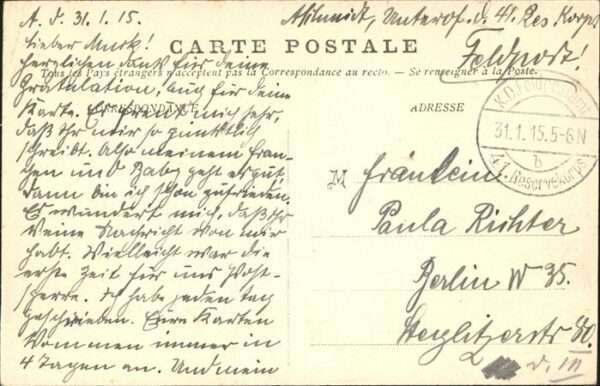 A. d. 31.1.15.
A. Schmidt, Unterof. d. 41. Res Korps
Feldpost!
CARTE POSTALE
Tous les Pays étrangers n'acceptent pas la Correspondance au recto. — Se renseigner à la Poste.
CORRESPONDANCE
ADRESSE
Lieber Murk!
Herzlichen Dank für deine
Gratulation, auch für deine
Karte. Es freut mich sehr,
daß Ihr mir so pünktlich
schreibt. Also meinem Frau-
chen und Baby geht es gut,
dann bin ich schon zufrieden.
Es wundert mich, daß Ihr
keine Nachricht von mir
habt. Vielleicht war die
erste Zeit für uns Post-
sperre. Ich habe jeden Tag
geschrieben. Eure Karten
kommen immer in
4 Tagen an. Und mein
K.D. Feldpostamt
31.1.15.5-6N
b
41. Reservekorps
M Fräulein
Paula Richter
Berlin W 35.
Steglitzerstr 80.
v. III